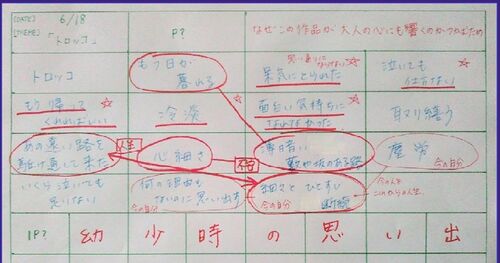 [DATE] 6/18
[THEME] 「トロッコ」
P?
なぜこの作品が大人の心にも響くのかつかむため
トロッコ
もう日が
暮れる
思い通りに
ならない
呆気にとられた
泣いても
仕方ない
もう帰って
くれればいい
冷淡
面白い気持ちに
なれなかった
取り繕う
あの遠い路を
駆け通して来た
人生
心細さ
不安
薄暗い
藪や坂のある路
塵労
今の自分
いくら泣いても
足りない
何の理由も
ないのに思い出す
今の自分
細々と一すじ
断続
今の自分
今の人生
これからの人生
1P?
幼少時の思い出